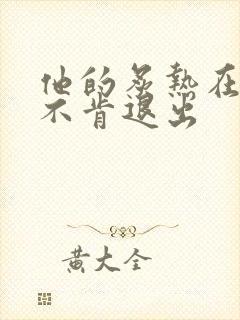 他的炙热在
不肯退出
黄大全